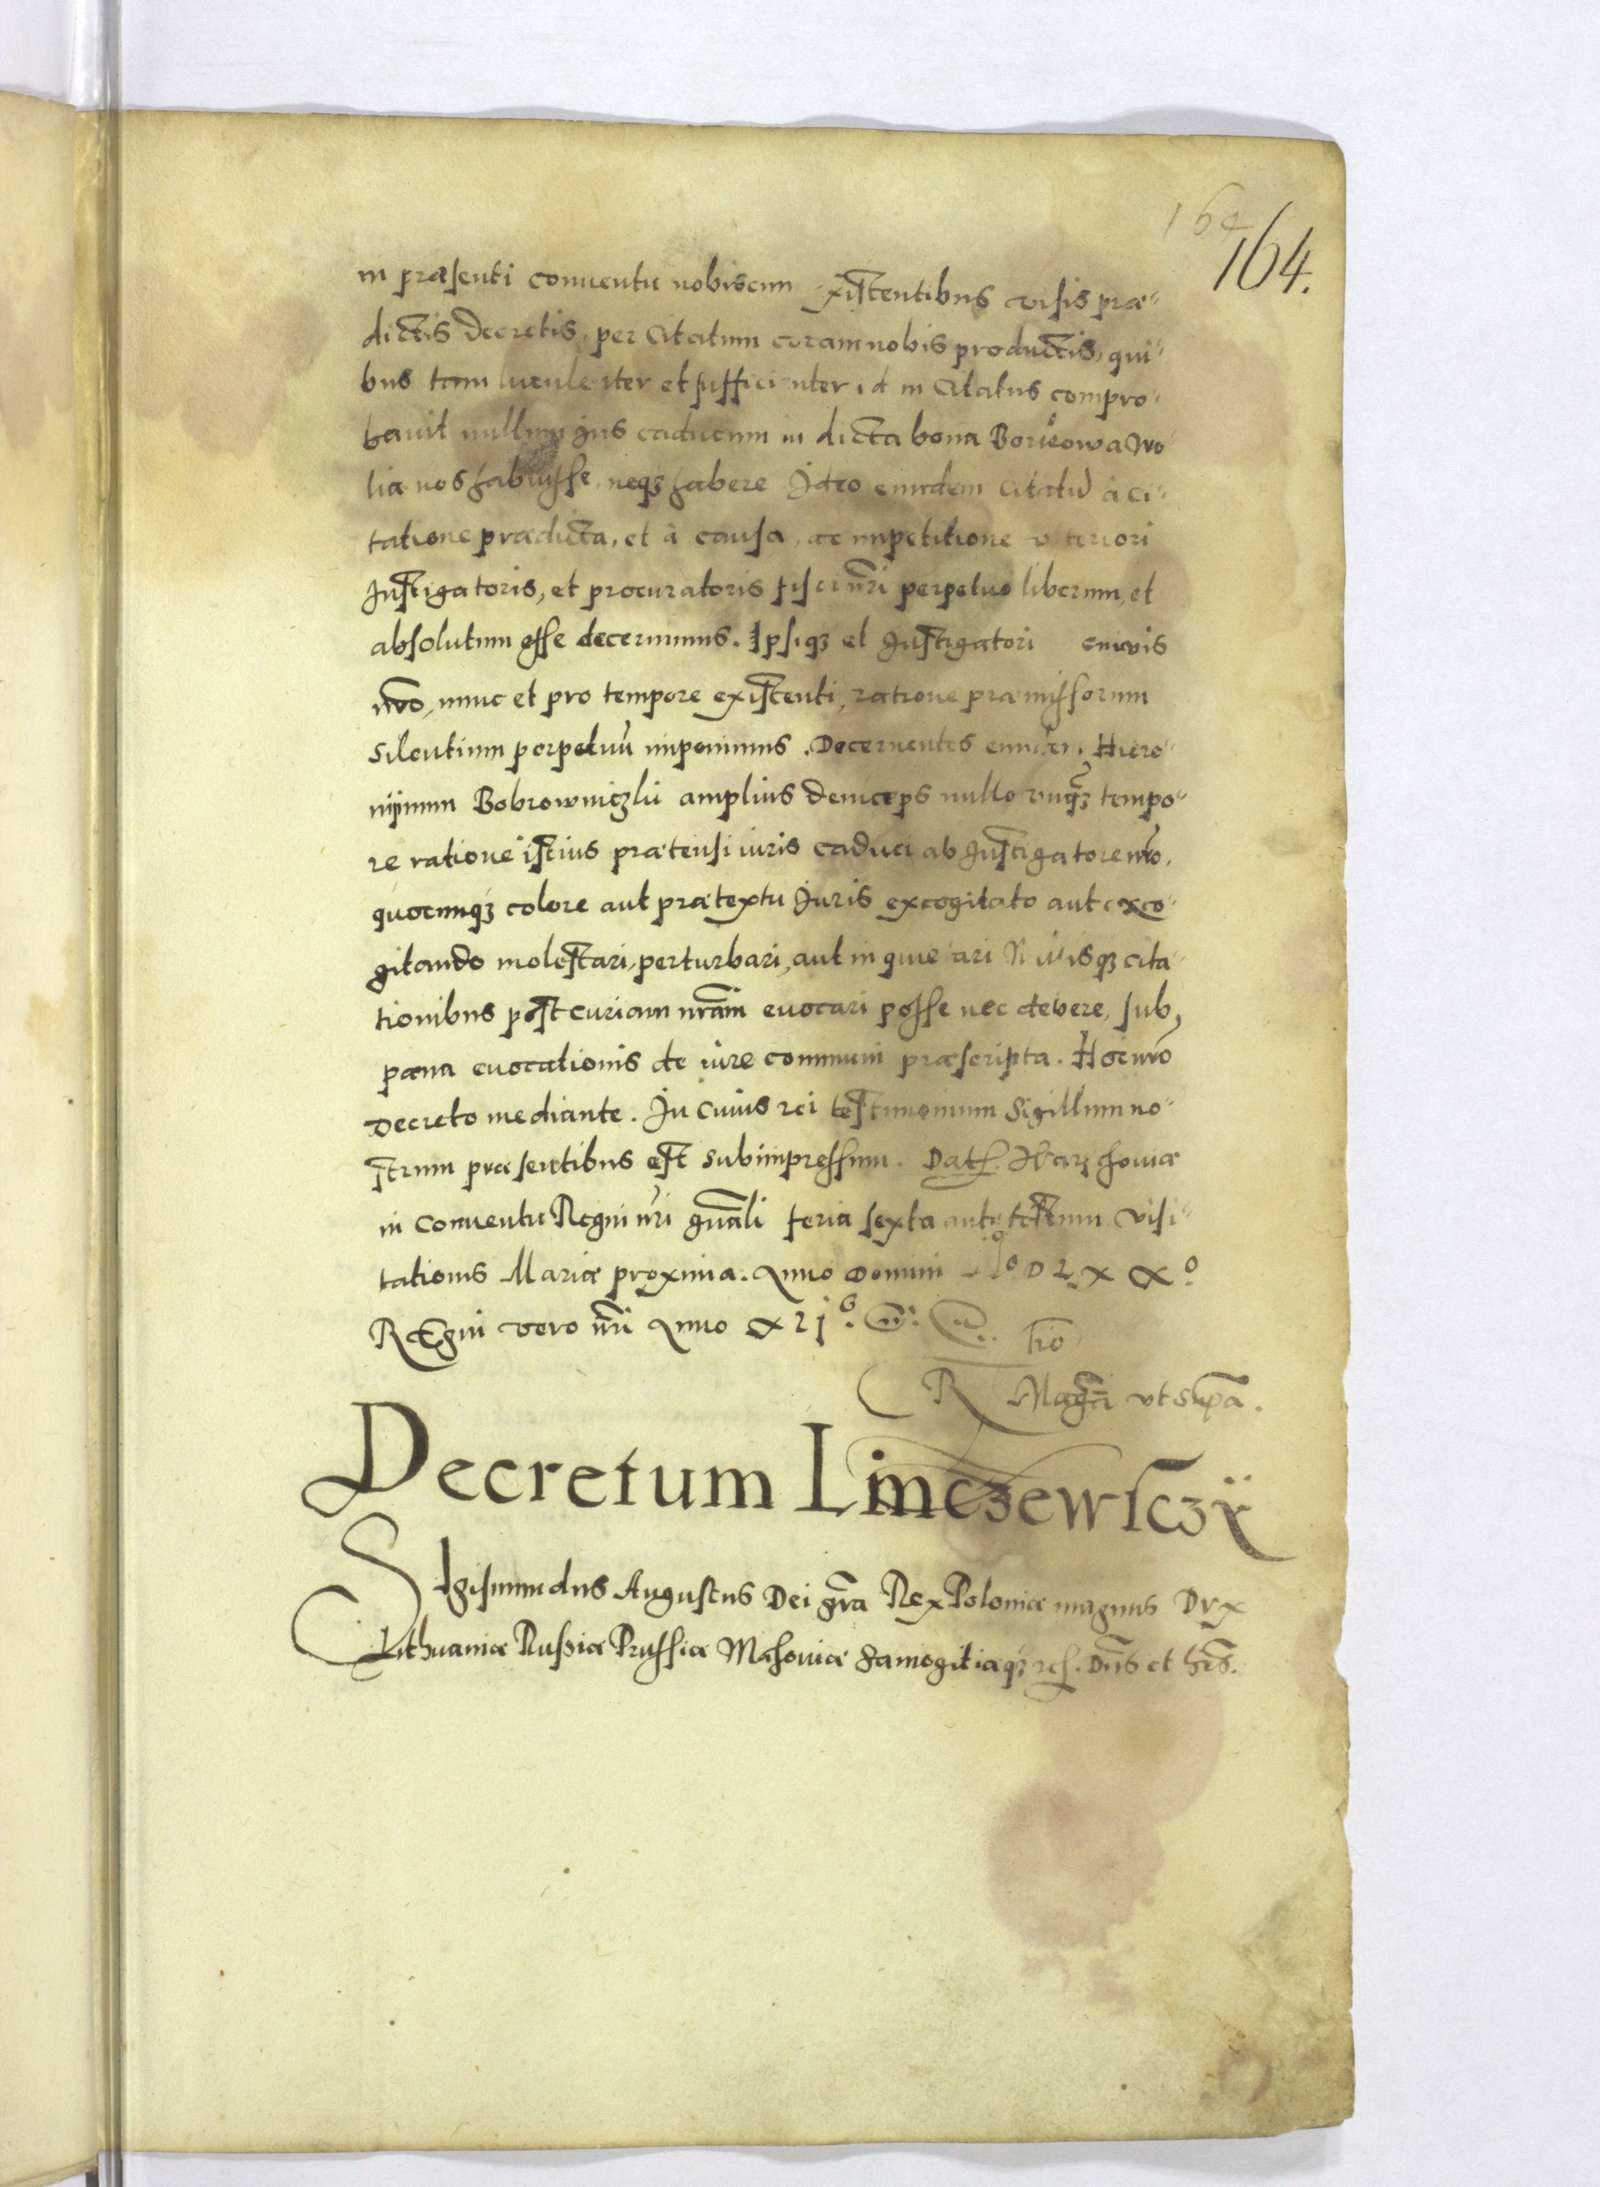 164
164.
in præsenti conuentu nobiscum existentibus visis præ-
dictis decretis, per Citatum coram nobis productis, qui-
bus tam luculenter et sufficienter id in Citatus compro-
bavit nullum Jus caducum in dicta bona Wo-
lia nos habuisse, neqʒ habere Ideo eundem Citatū à ci-
tatione prædicta, et à causa, ac impetitione vlteriori
Instigatoris, et procuratoris fisci nr̃i perpetuo liberum, et
absolutum esse decernimus. Ipsiqʒ et Instigatori cuivis
nr̃o, nunc et pro tempore existenti, ratione præmissorum
Silentium perpetuū imponimus. Decernentes eundem Hiero-
nÿmum Bobrowniczki amplius deinceps nullo vnqʒ̃ tempo-
re ratione istius prætensi iuris caduci ab Instigatore nr̃o,
quocunqʒ colore aut prætextu Juris excogitato aut exco-
gitando molestari, perturbari, aut inquietari citа-
tionibus post curiam nr̃am evocari posse nec debere, sub
pæna evocationis de iure communi præscripta. Hoc nr̃o
Decreto mediante. In Cuius rei testimonium Sigillum no-
strum præsentibus est subimpressum. Dat. Warschouiæ
in Conuentu Regni nr̃i gnãli feria sexta ante festum Visi-
tationis Mariæ proxima. Anno Domini Mº D L X Xº
REgni vero nr̃i Anno X L Iº.
R tio Magcã vt supã.
Decretum Linczewsczÿ
SIgismundus Augustus Dei grã Rex Poloniæ magnus Dvx
Lithuaniæ Russiæ Prussiæ Masouiæ Samogitiæqʒ Dñs et hr̃s.